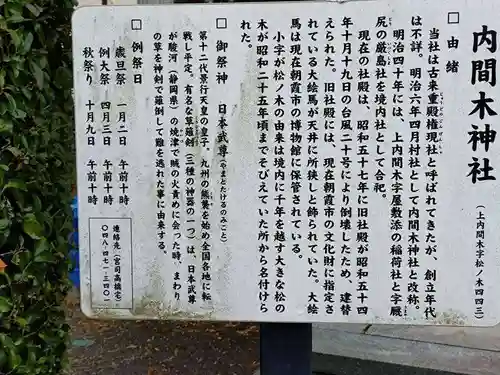 内間木神社
（上内間木字松ノ木四四三）
□ 由緒
当社は古来重殿権現社と呼ばれてきたが、創立年代
は不詳。明治六年四月村社として内間木神社と改称。
明治四十年には、上内間木字屋敷添の稲荷社と字厩
尻の厳島社を境内社として合祀。
現在の社殿は、昭和五十七年に旧社殿が昭和五十四
年十月十九日の台風二十号により倒壊したため、建替
えられた。旧社殿には、現在朝霞市の文化財に指定さ
れている大絵馬が天井に所狭しと飾られていた。大絵
馬は現在朝霞市の博物館に保管されている。
小字が松ノ木の由来は境内に千年を越す大きな松の
木が昭和二十五年頃までそびえていた所から名付けら
れた。
□ 御祭神 日本武尊（やまとたけるのみこと）
第十二代景行天皇の皇子。九州の熊襲を始め全国各地に転
戦し平定。有名な草薙剣（三種の神器の一つ）は、日本武尊
が駿河（静岡県）の焼津で賊の火責めに会った時、まわり
の草を神剣で薙倒して難を逃れた事に由来する。
□ 例祭日
歳旦祭 一月二日 午前十時
例大祭 四月三日 午前十時
秋祭り 十月九日 午前十時
連絡先（宮司高橋宅）
〇四八‐四七一‐三四〇一